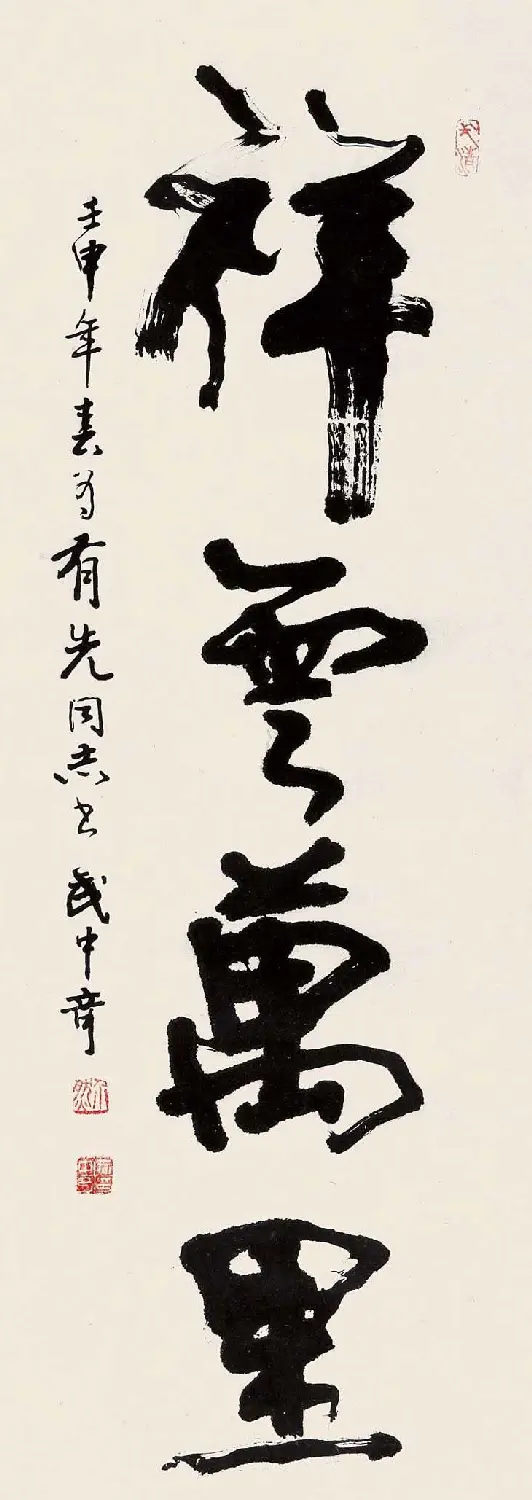 祥雲萬里
壬申年春為有先同志書 武中奇